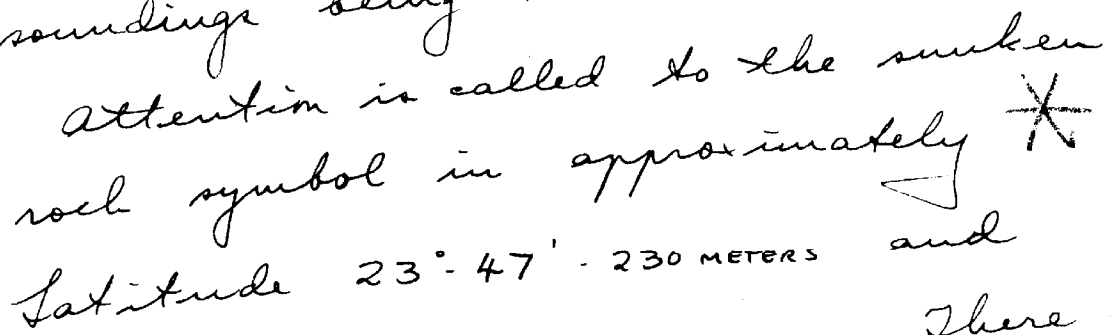 soundings being
Attention is called to the sunken
rock symbol in approximately *
Latitude 23°-47' - 230 METERS and
There